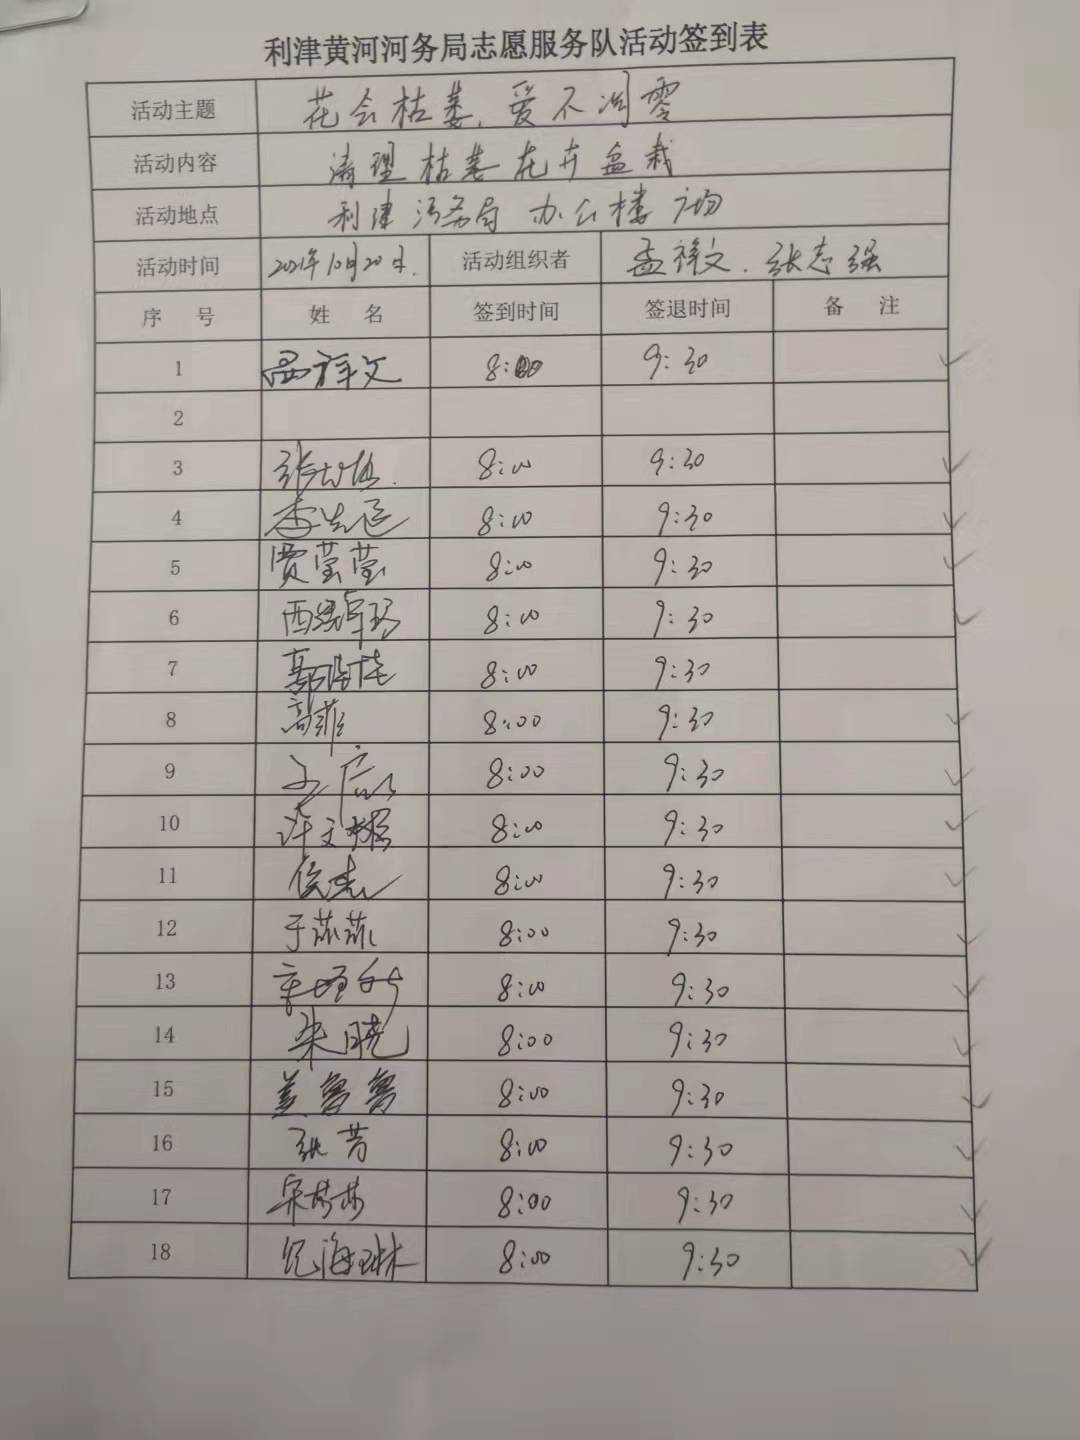 利津黄河河务局志愿服务队活动签到表
活动主题 花会枯萎,爱不凋零
活动内容 清理枯萎花卉盆栽
活动地点 利津河务局办公楼广场
活动时间 2021年10月20日. 活动组织者 孟祥文.张志强
序号 姓名 签到时间 签退时间 备注
1 孟祥文 8:00 9:30
2
3 8:00 9:30
4 李先延 8:00 9:30
5 贾莹莹 8:00 9:30
6 8:00 9:30
7 8:00 9:30
8 高菲 8:00 9:30
9 8:00 9:30
10 8:00 9:30
11 侯杰 8:00 9:30
12 于菲菲 8:00 9:30
13 8:00 9:30
14 晓 8:00 9:30
15 盖鲁鲁 8:00 9:30
16 张芳 8:00 9:30
17 8:00 9:30
18 纪海琳 8:00 9:30